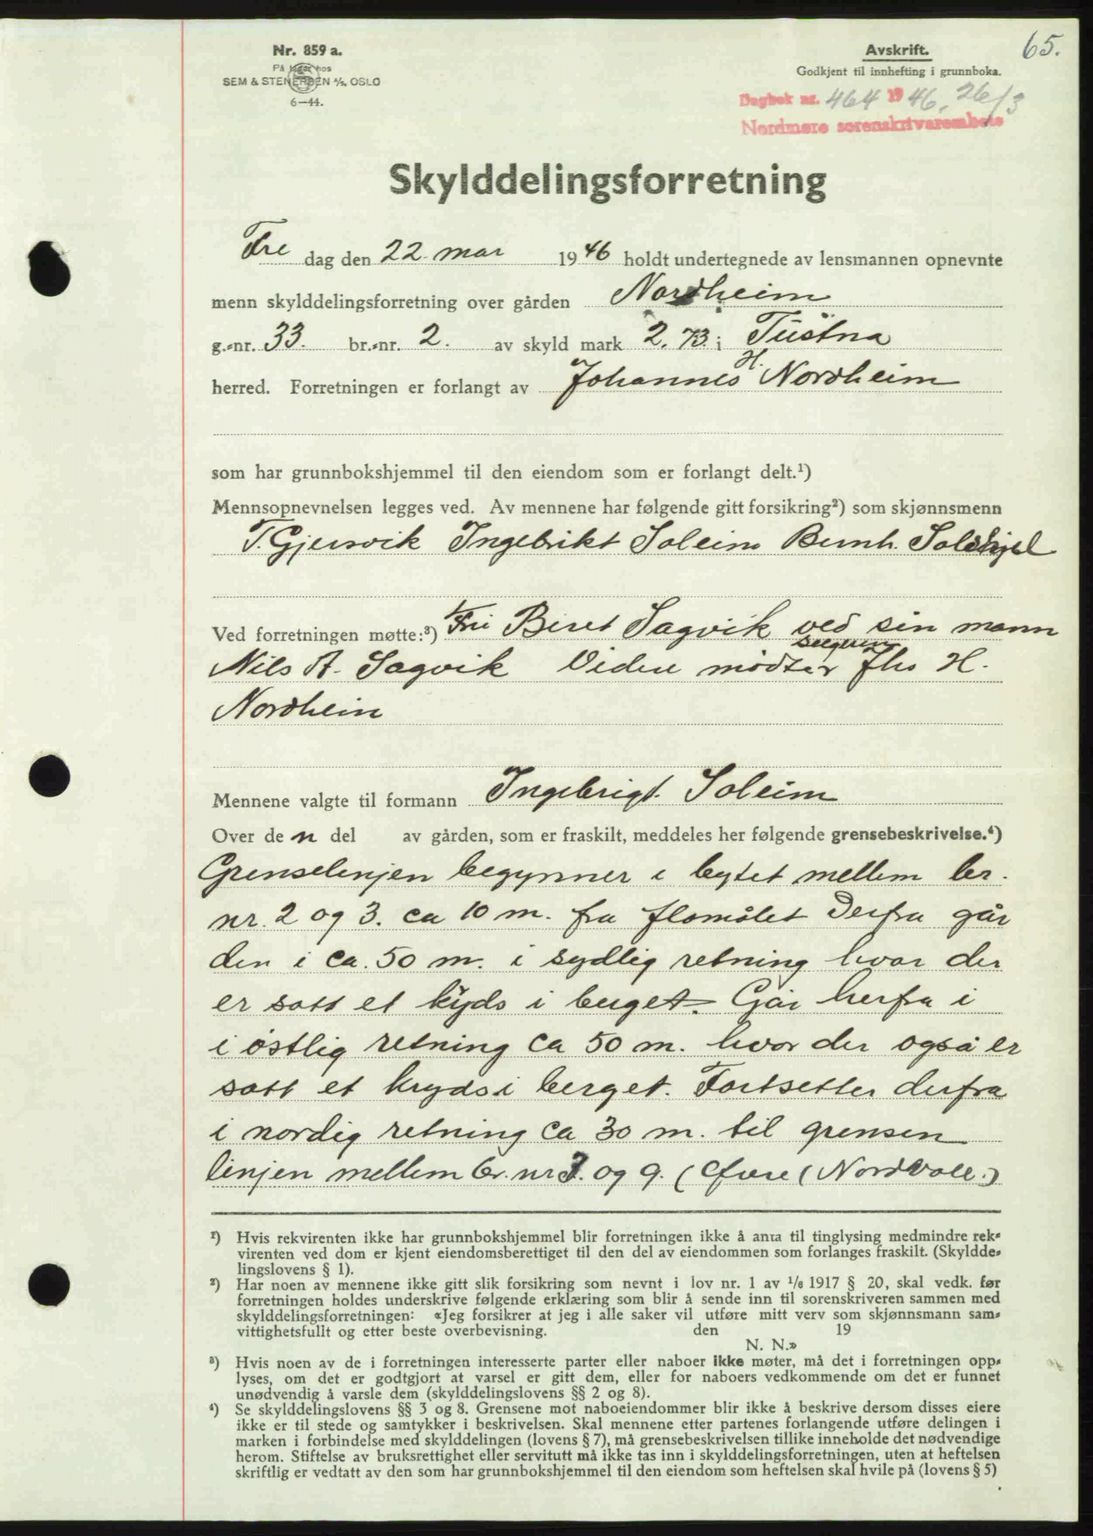 Nr. 859 a.
På lager hos
SEM & STENERSEN A/S. OSLO
6—44.
Avskrift.
Godkjent til innhefting i grunnboka.
65.
Dagbok nr. 464 1946, 26/3
Nordmøre sorenskriverembete
Skylddelingsforretning
Fre dag den 22. mar 1946 holdt undertegnede av lensmannen opnevnte
menn skylddelingsforretning over gården Nordheim
g.-nr. 33. br.-nr. 2. av skyld mark 2.73. i Tustna
herred. Forretningen er forlangt av Johannes H. Nordheim
som har grunnbokshjemmel til den eiendom som er forlangt delt.¹)
Mennsopnevnelsen legges ved. Av mennene har følgende gitt forsikring²) som skjønnsmenn
T. Gjersvik Ingebrikt Soleim Bernh. Solskjel
Ved forretningen møtte:³) Fru Beret Sagvik ved sin mann
Nils A. Sagvik Videre mødter selgeren Jhs H.
Nordheim
Mennene valgte til formann Ingebrigt Soleim
Over den del av gården, som er fraskilt, meddeles her følgende grensebeskrivelse.⁴)
Grenselinjen begynner i bytet mellem br.
nr. 2 og 3. ca 10 m. fra flomålet Derfra går
den i ca. 50 m. i sydlig retning hvor der
er satt et kryds i berget. Går herfra i
i østlig retning ca 50 m. hvor der også er
satt et kryds i berget. Fortsetter derfra
i nordig retning ca 30 m. til grensen
linjen mellem br. nr 3. og 9. ( (Nordvoll.)
¹) Hvis rekvirenten ikke har grunnbokshjemmel blir forretningen ikke å anta til tinglysing medmindre rek-
virenten ved dom er kjent eiendomsberettiget til den del av eiendommen som forlanges fraskilt. (Skyldde-
lingslovens § 1).
²) Har noen av mennene ikke gitt slik forsikring som nevnt i lov nr. 1 av 1/6 1917 § 20, skal vedk. før
forretningen holdes underskrive følgende erklæring som blir å sende inn til sorenskriveren sammen med
skylddelingsforretningen: «Jeg forsikrer at jeg i alle saker vil utføre mitt verv som skjønnsmann sam-
vittighetsfullt og etter beste overbevisning. den 19
N. N.»
³) Hvis noen av de i forretningen interesserte parter eller naboer ikke møter, må det i forretningen opp-
lyses, om det er godtgjort at varsel er gitt dem, eller for naboers vedkommende om det er funnet
unødvendig å varsle dem (skylddelingslovens §§ 2 og 8).
⁴) Se skylddelingslovens §§ 3 og 8. Grensene mot naboeiendommer blir ikke å beskrive dersom disses eiere
ikke er til stede og samtykker i beskrivelsen. Skal mennene etter partenes forlangende utføre delingen i
marken i forbindelse med skylddelingen (lovens § 7), må grensebeskrivelsen tillike inneholde det nødvendige
herom. Stiftelse av bruksrettighet eller servitutt må ikke tas inn i skylddelingsforretningen, uten at heftelsen
skriftlig er vedtatt av den som har grunnbokshjemmel til den eiendom som heftelsen skal hvile på (lovens § 5)